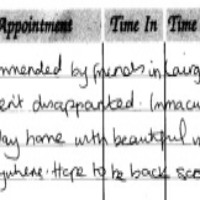 Appointment Time In Time
mmended by friends in Lairg
ent disappointed. Immacu
day home with beautiful v
ywhere. Hope to be back soo